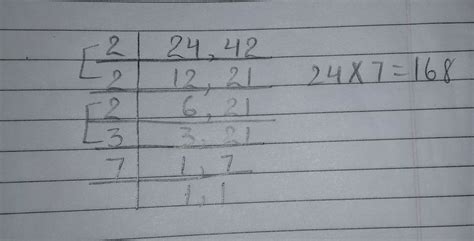 2 | 24, 42
2 | 12, 21
24 X 7 = 168
2 | 6, 21
3 | 3, 21
7 | 1, 7
1, 1